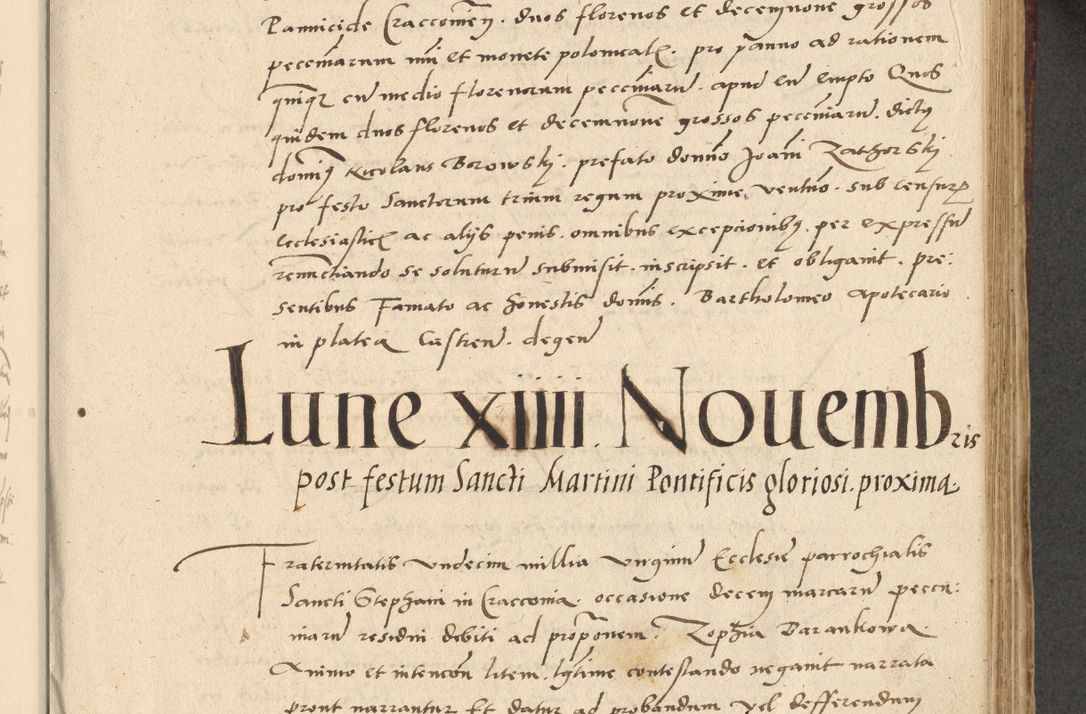 Pannicide Cracconien. duos florenos et decemnone grossos
peccuniarum nui et monete polonicalis. pro panno ad rationem
quinque cum medio florenorum pecuniarum. apud eum empto Quos
quidem duos florenos et decemnone grossos peccuniarum. dictus
dominus Nicolaus Borowski. prefato domino Joanni Zathorski
pro festo Sanctorum trium regum proxime venturo. sub censuris
Ecclesiasticis ac alijs penis. omnibus excepcionibus. per expressum
renunciando se soluturum submisit. inscripsit. et obligauit. pre:
sentibus Famato ac honestis dominis. Bartholomeo Apotecario
in platea Castren. degen
Lune XIIII. Nouembris
post festum Sancti Martini Pontificis gloriosi. proxima.
Fraternitatis vndecim millia virginum Ecclesie parrochialis
Sancti Stephani in Cracconia. occasione decem marcarum peccu:
niarum residui debiti ad proponem. Zophia Barankowa.
Animo et intencon litem. legitime contestando negauit narrata
prout narrantur Et datur ad probandum vel defferendum